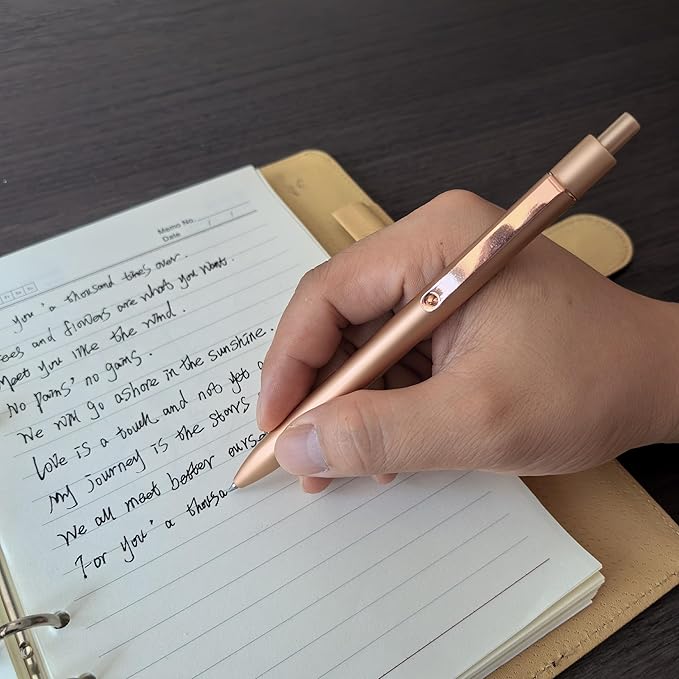 Memo No.
Date / /
you ' a thousand times over.
and flowers are what you want.
Meet you like the wind.
No pains' no gains.
We will go ashore in the sunshine.
Love is a touch and not yet a
my journey is the stars
We all meet better ourse
For you' a thousa